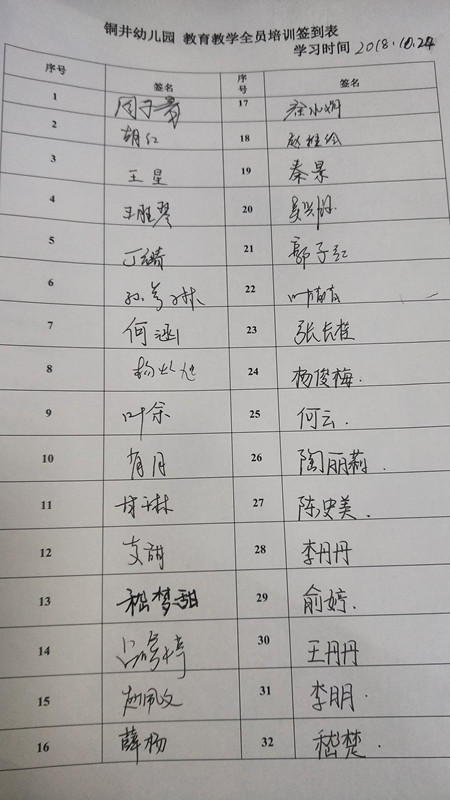 铜井幼儿园 教育教学全员培训签到表
学习时间 2018.10.24
序号 签名 序号 签名
1 周子 17 徐小娟
2 胡红 18 赵桂
3 王星 19 秦果
4 王胜琴 20 吴兴
5 丁 21 郭子红
6 孙 22 叶
7 何涵 23 张长桂
8 杨 24 杨俊梅.
9 叶余 25 何云.
10 肖月 26 陶丽莉.
11 27 陈史美.
12 支甜 28 李丹丹
13 嵇梦甜 29 俞婷.
14 吕 30 王丹丹
15 赵佩文 31 李明.
16 薛杨 32 嵇楚.